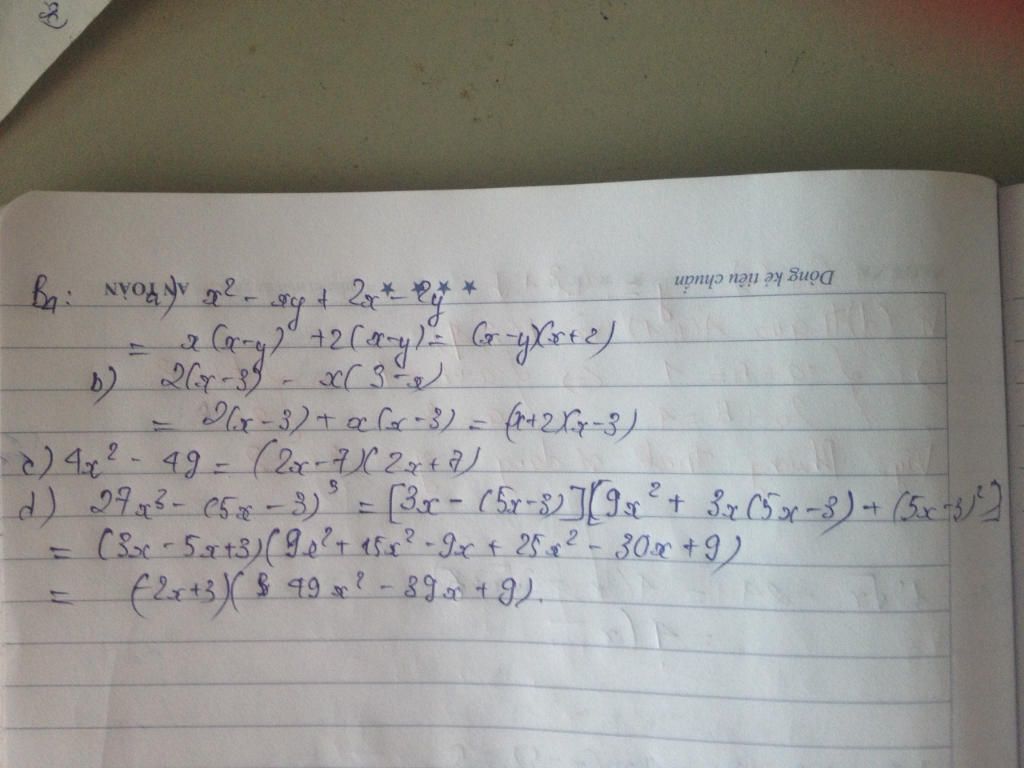 B4: a) x² - xy + 2x - 2y
= x(x-y) + 2(x-y) = (x-y)(x+2)
b) 2(x-3) - x(3-x)
= 2(x-3) + x(x-3) = (x+2)(x-3)
c) 4x² - 49 = (2x-7)(2x+7)
d) 27x³ - (5x-3)³ = [3x - (5x-3)][9x² + 3x(5x-3) + (5x-3)²]
= (3x - 5x+3)(9x² + 15x² - 9x + 25x² - 30x + 9)
= (-2x+3)(49x² - 39x + 9).
Dòng kẻ tiêu chuẩn
AN TOÀN ★ ★ ★ ★